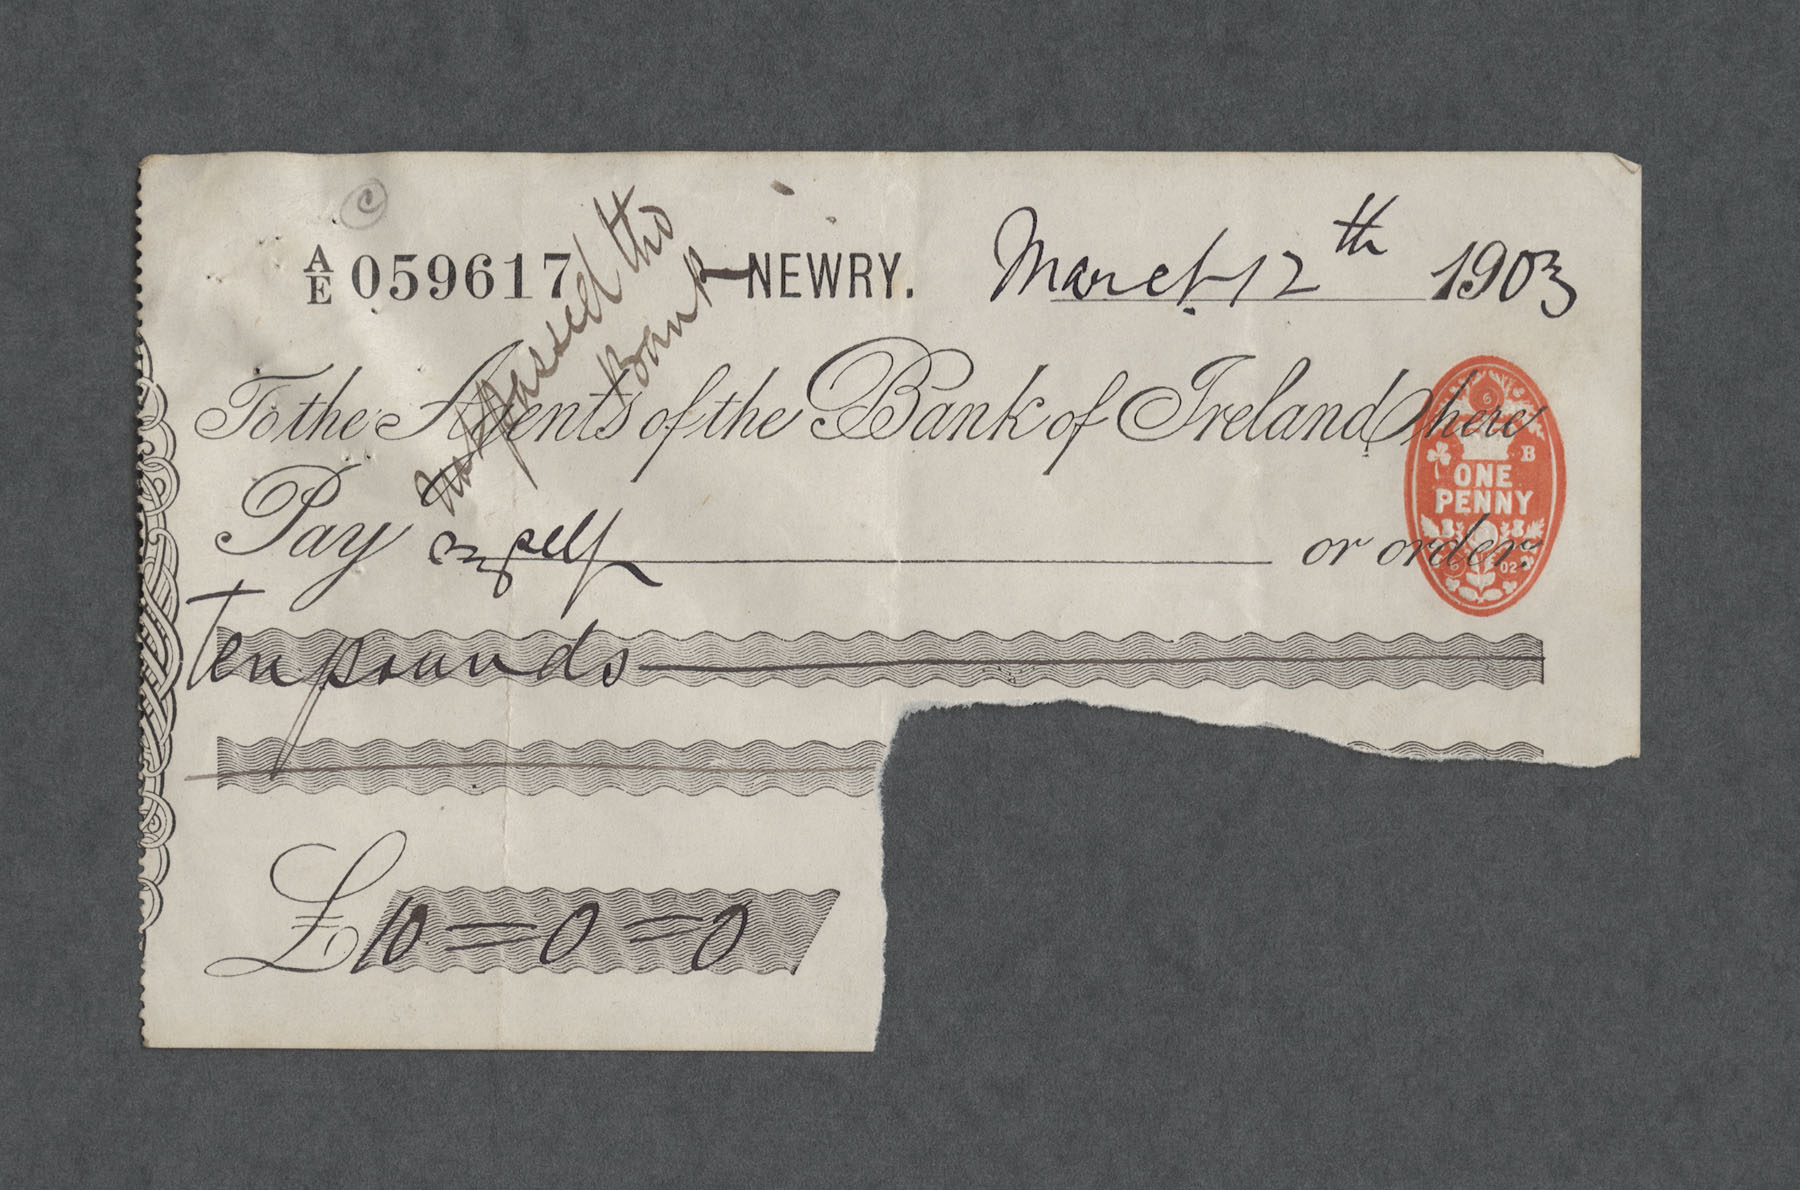 C
A/E 059617 NEWRY. March 12th 1903
not passed thro
Bank
To the Agents of the Bank of Ireland here
Pay myself or order.
6
B
ONE
PENNY
6 02
Ten pounds
£10=0=0